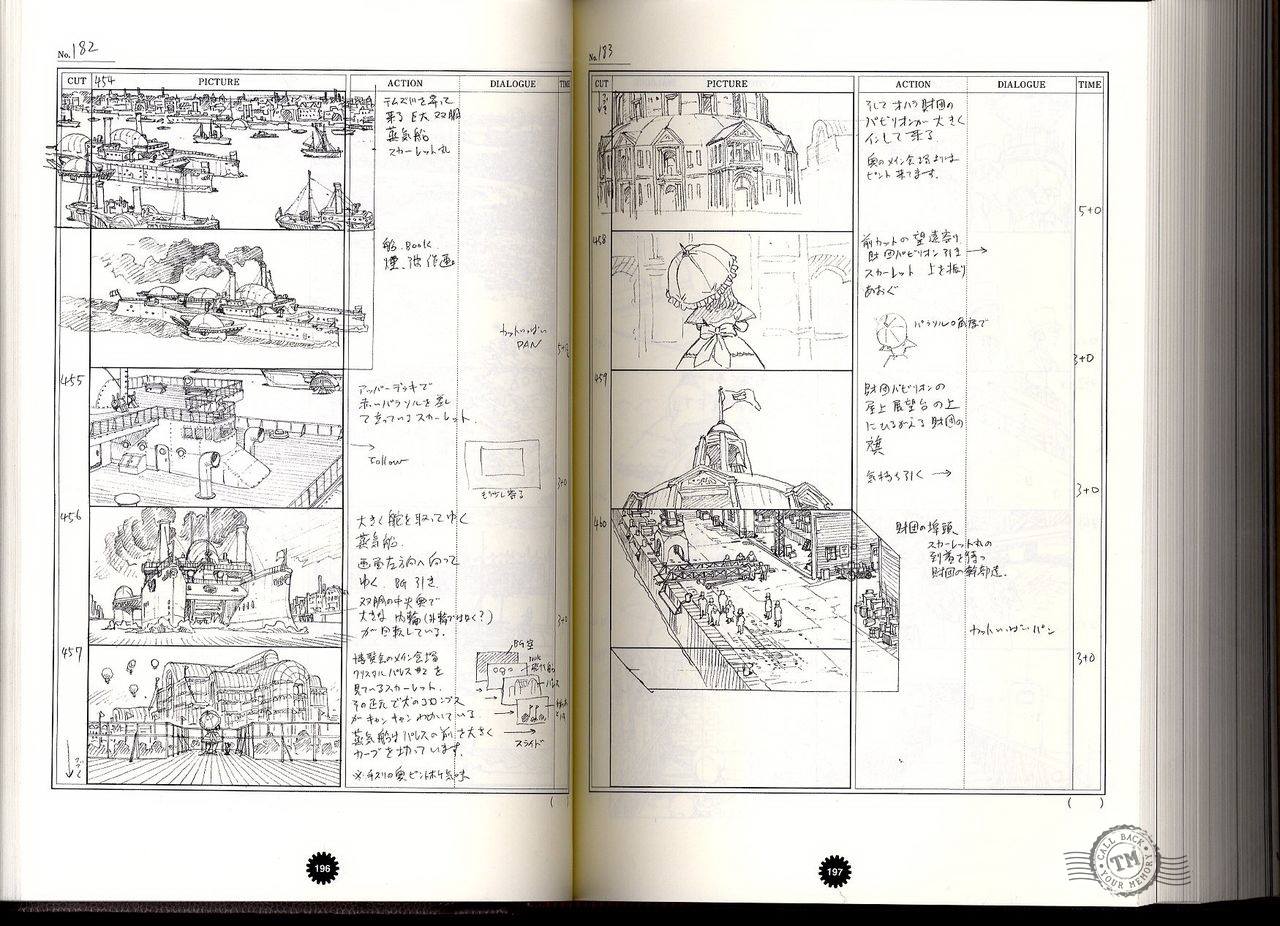 No. 182
CUT
PICTURE
ACTION
DIALOGUE
TIME
454
来る 巨大 双胴
蒸気船
スカーレット丸
船.BOOK
カットいっぱい
PAN
455
アッパーデッキで
赤いパラソルを差し
て立っているスカーレット.
→
Follow
3+0
456
大きく舵を取ってゆく
蒸気船.
画面左方向へ向って
ゆく BG引き
双胴の中央奥で
大きな内輪(外輪ではなく?)
が回転している.
3+0
457
博覧会のメイン会場
クリスタルパレス#2を
見ているスカーレット.
その足元で犬のコロンブス
がキャンキャンわめいている.
蒸気船はパレスの前を大きく
カーブを切っています.
BG空
スライド
( )
196
No. 183
CUT
PICTURE
ACTION
DIALOGUE
TIME
そして オハラ財団の
パビリオンが大きく
インして来る
奥のメイン会場よりは
ピント来てます.
5+0
458
前カットの望遠寄り
財団パビリオン引き →
スカーレット 上を振り
あおぐ
3+0
459
財団パビリオンの
屋上展望台の上
にひるがえる財団の
旗
気持ち引く →
3+0
460
財団の埠頭
スカーレット丸の
到着を待つ
財団の幹部達.
カットいっぱいパン
3+0
( )
197
CALL BACK
TM
YOUR MEMORY